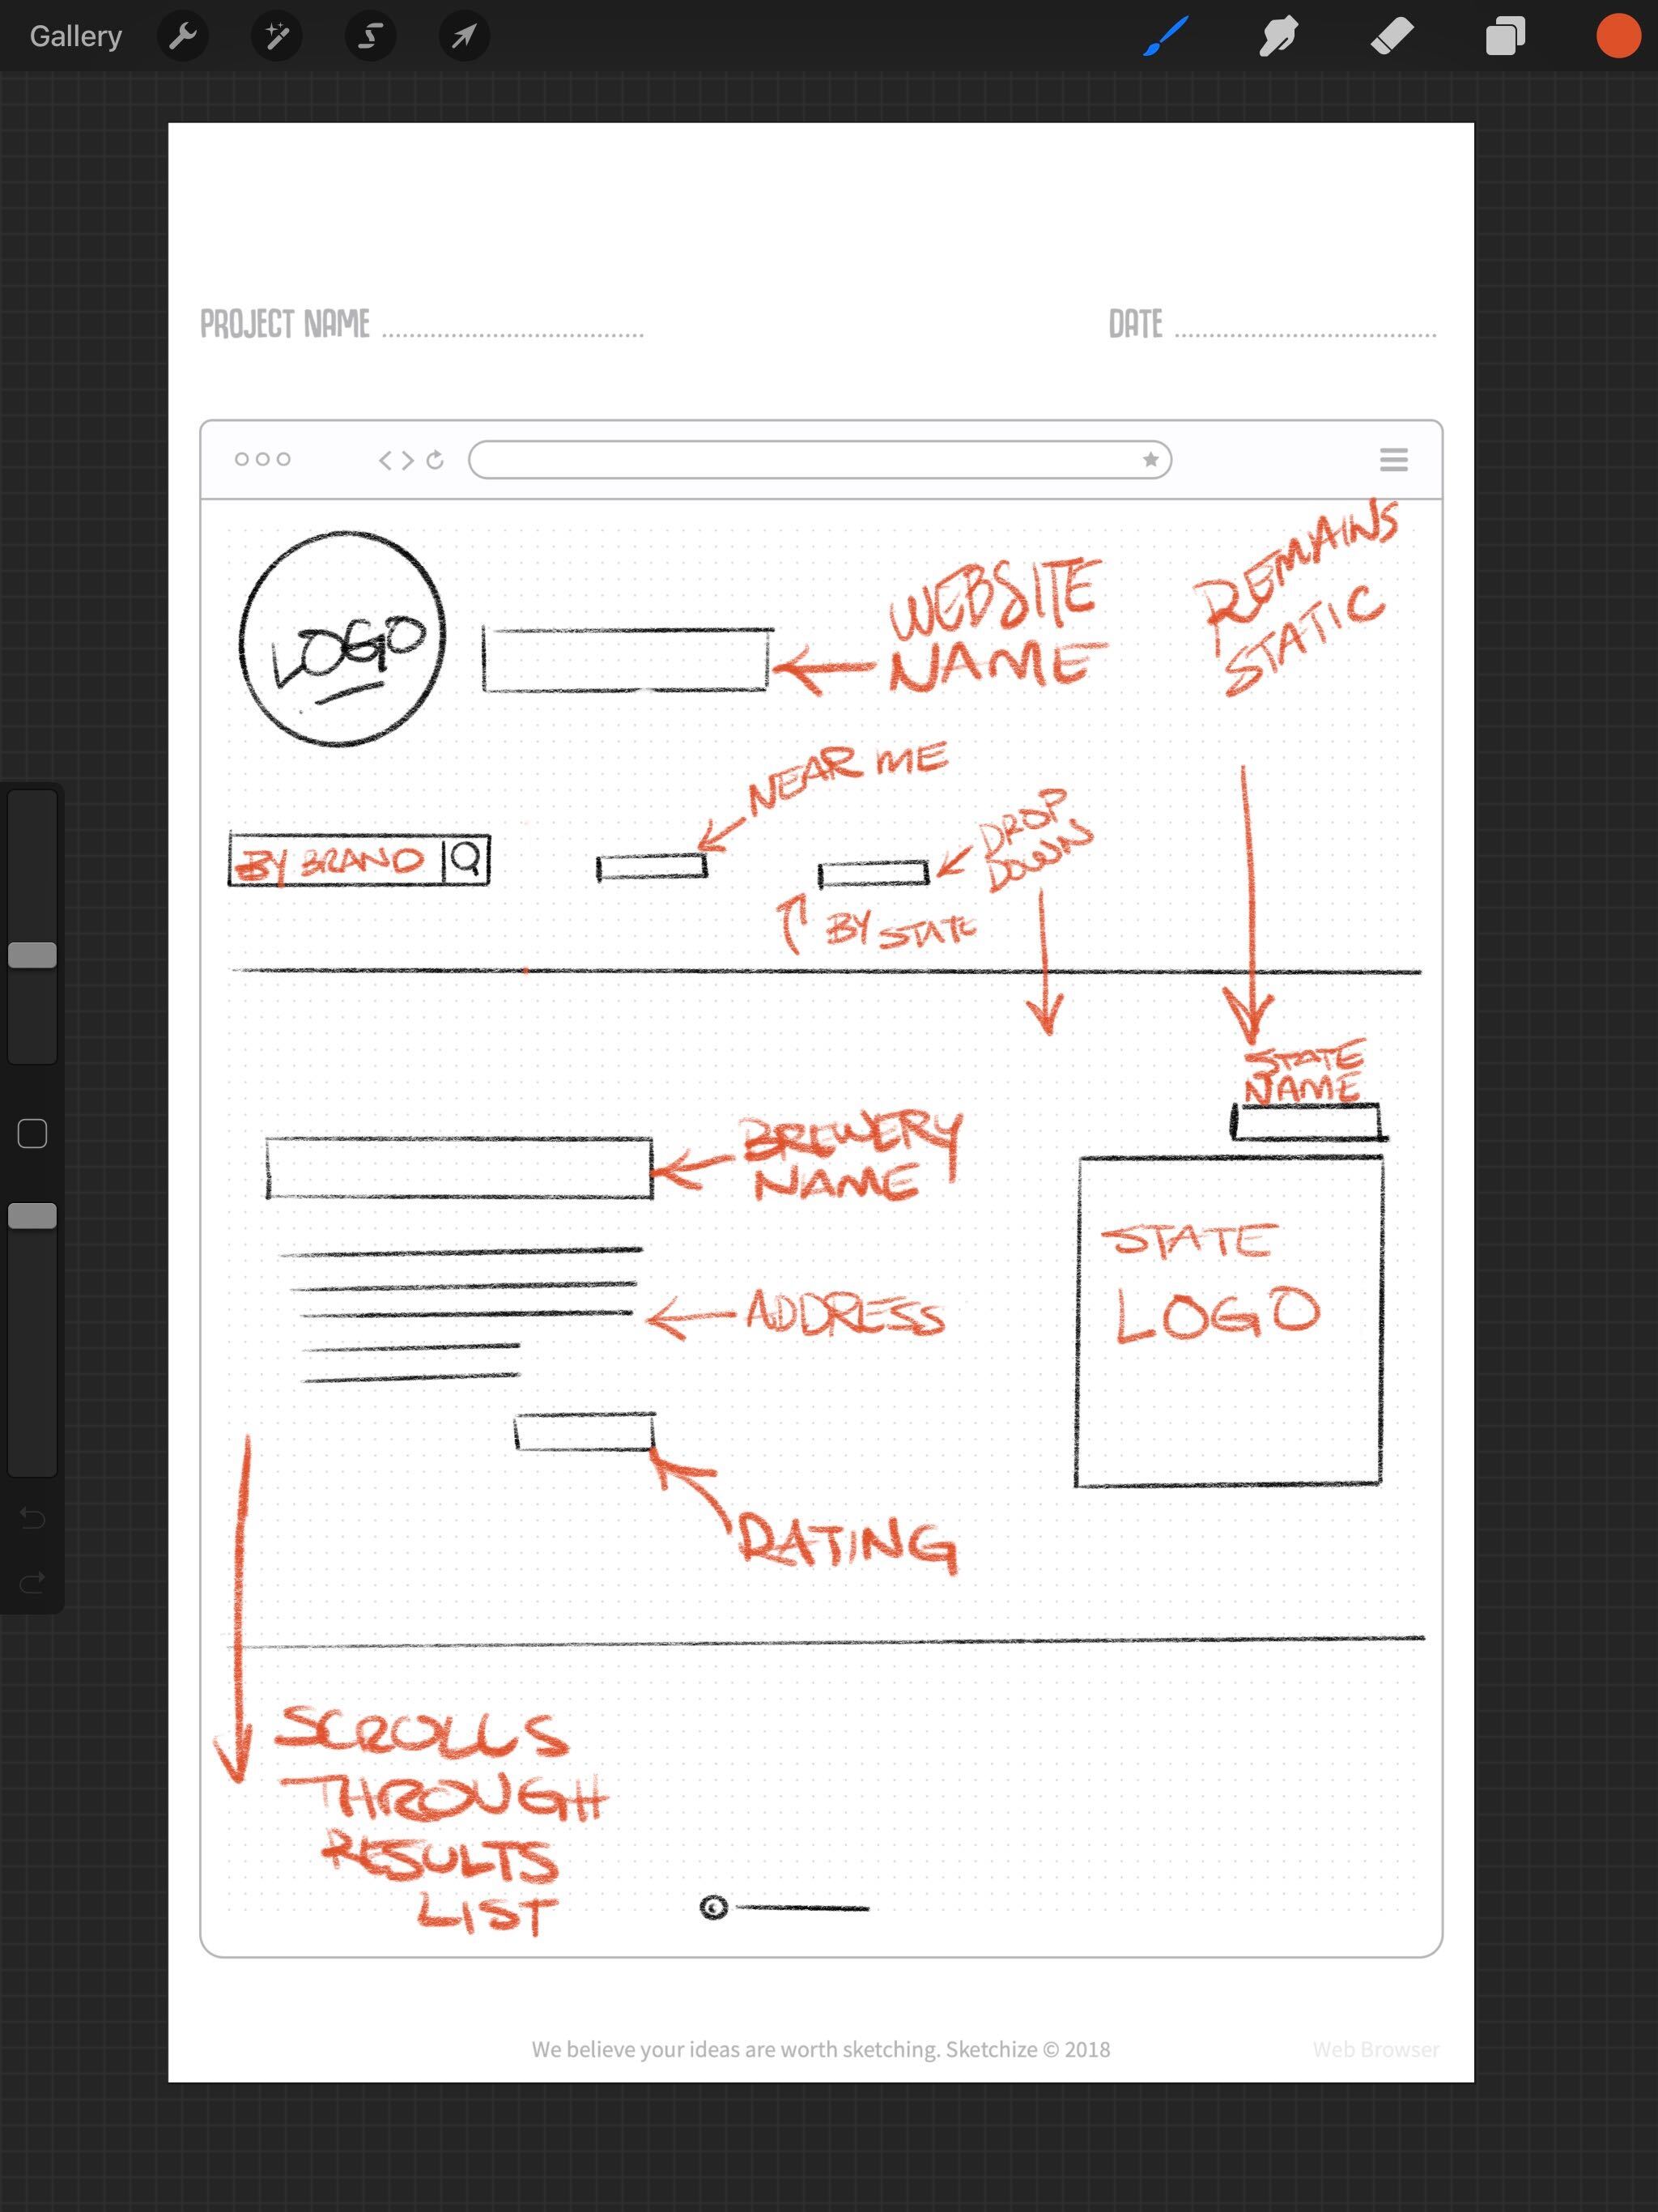 Gallery
PROJECT NAME
DATE
REMAINS
STATIC
LOGO
WEBSITE
NAME
NEAR ME
BY BRAND
DROP
DOWN
BY STATE
STATE
NAME
BREWERY
NAME
STATE
LOGO
ADDRESS
RATING
SCROLLS
THROUGH
RESULTS
LIST
We believe your ideas are worth sketching. Sketchize © 2018
Web Browser